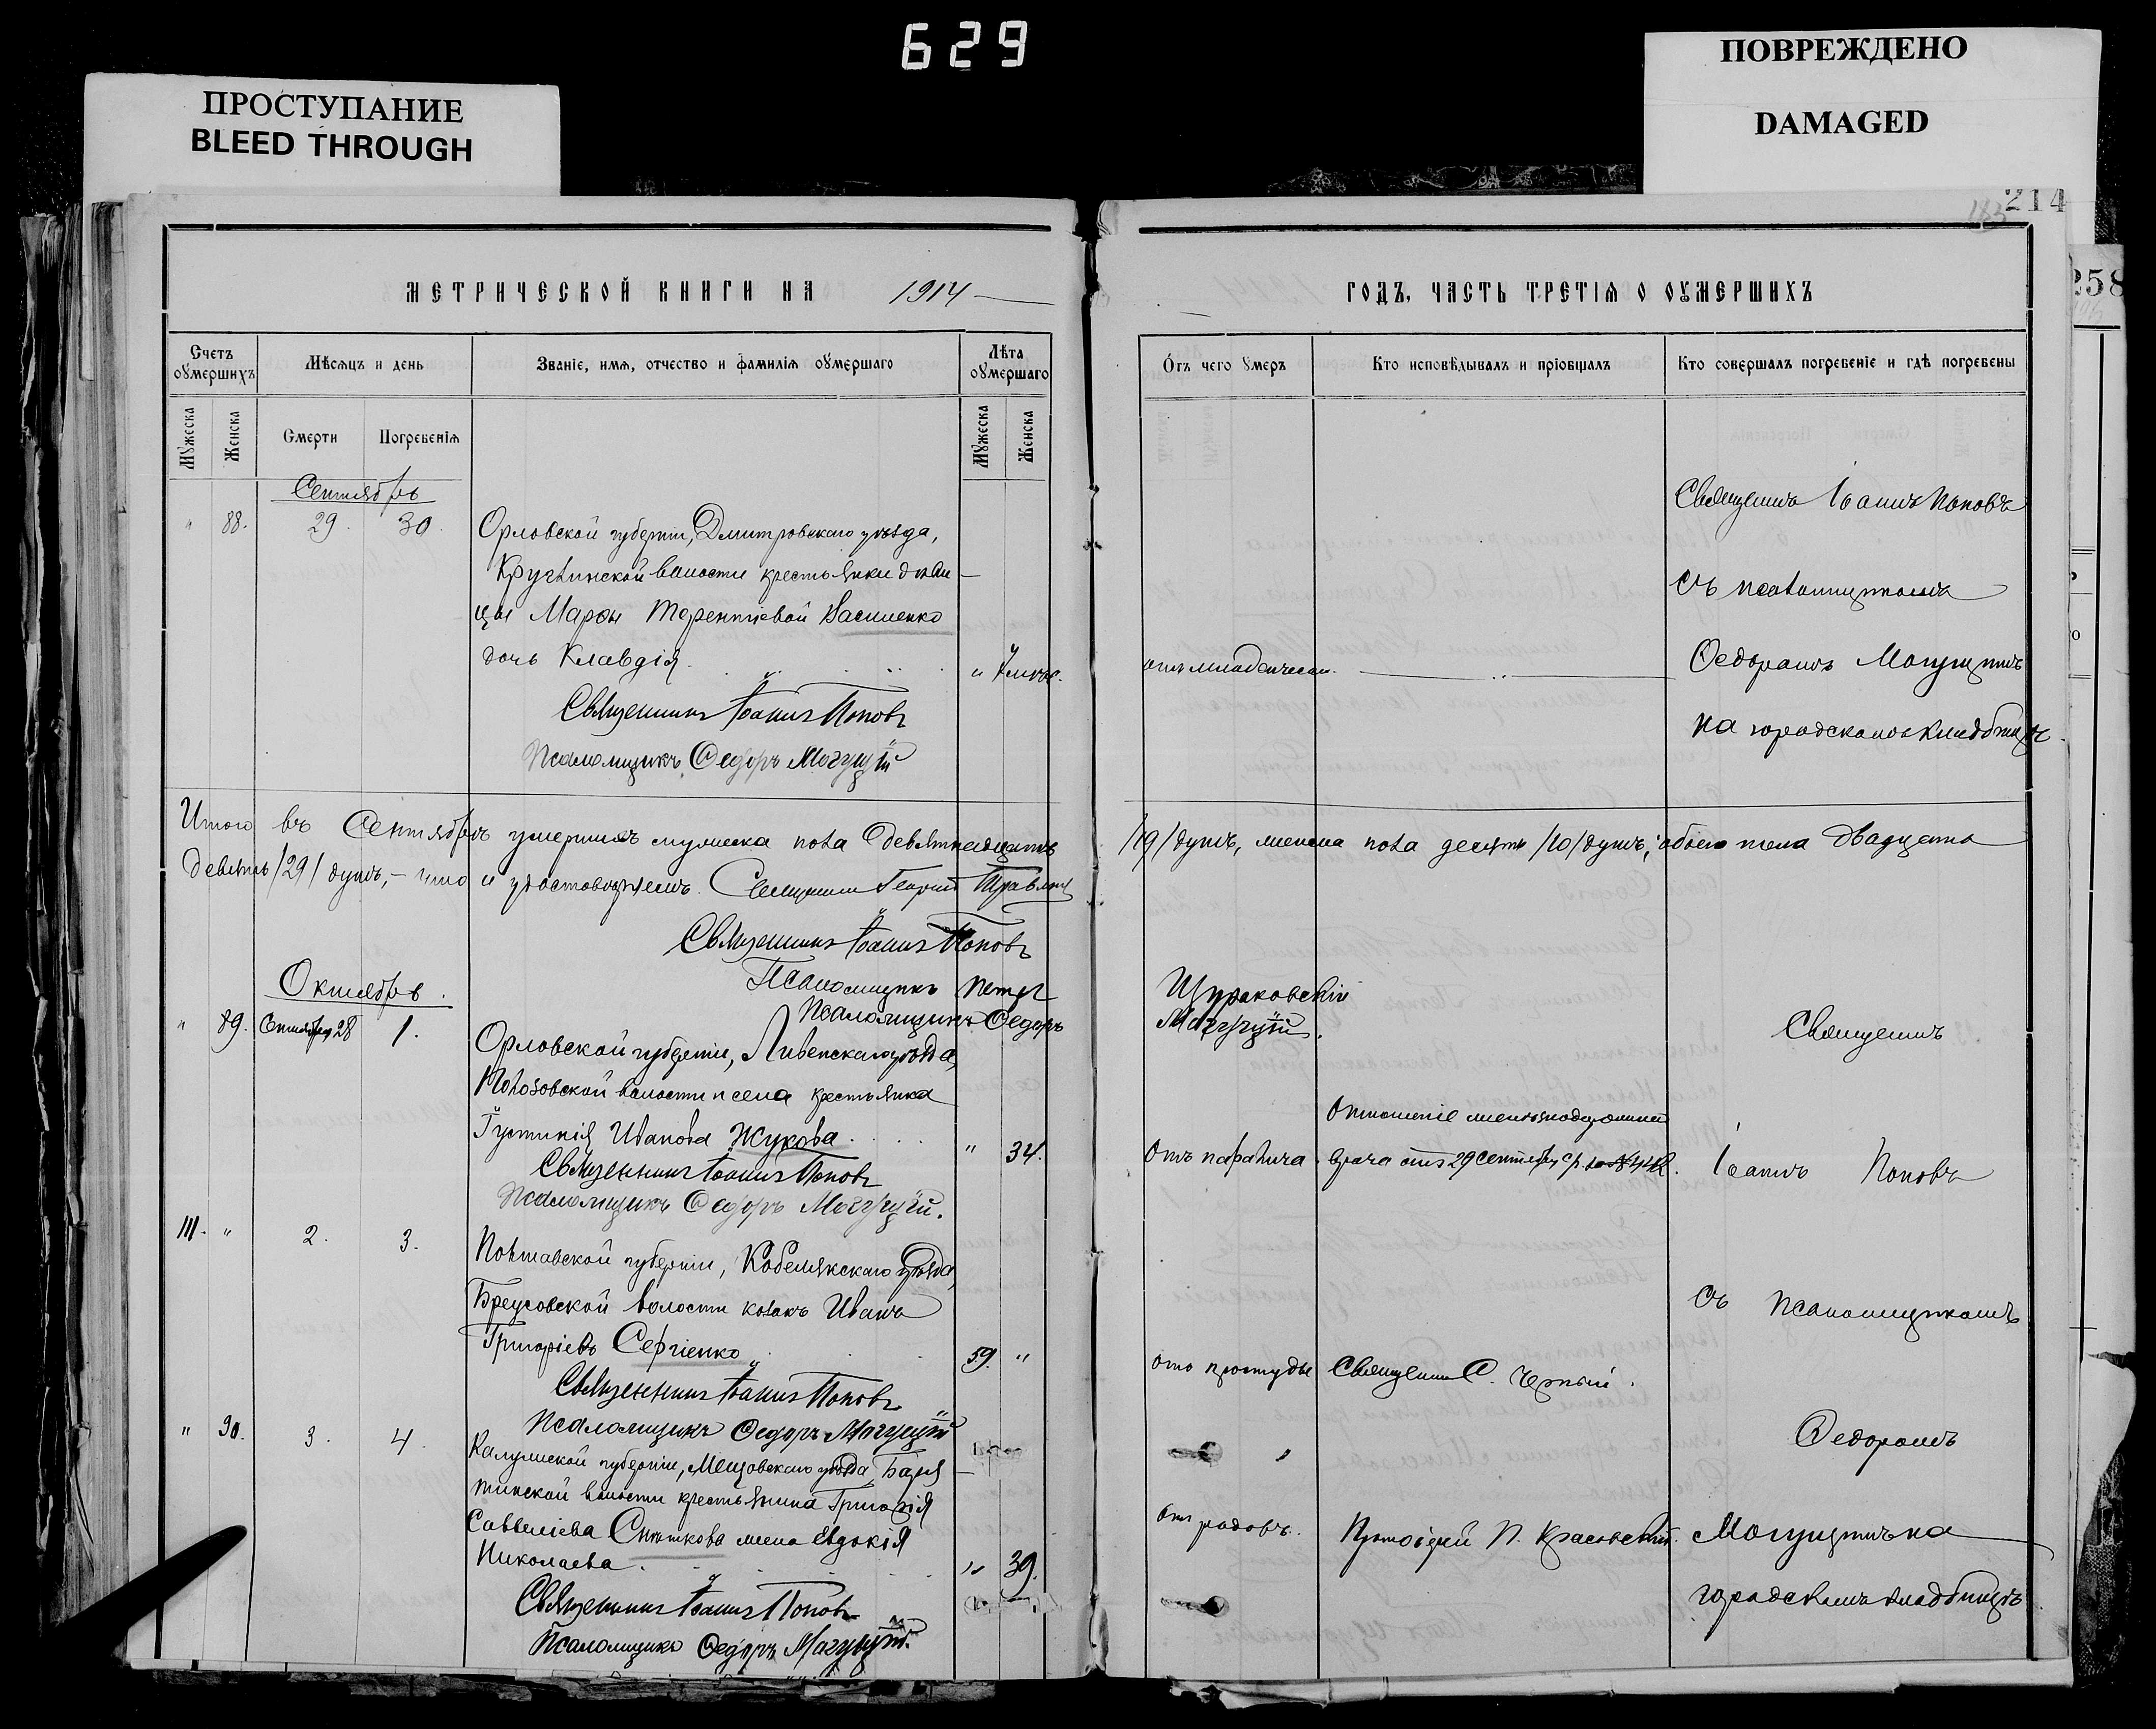 629
ПРОСТУПАНИЕ
BLEED THROUGH
ПОВРЕЖДЕНО
DAMAGED
214
258
МЕТРИЧЕСКОЙ КНИГИ НА 1914
Счетъ оумершихъ
Мѣсяцъ и день
Званіе, имя, отчество и фамилія оумершаго
Лѣта оумершаго
Мужеска
Женска
Смерти
Погребенія
Мужеска
Женска
Сентябрь
" 88. 29. 30.
Орловской губерніи, Дмитровскаго уѣзда,
волости крестьянки дѣви-
цы Марѳы Терентіевой Василенко
дочь Клавдія.
" 7 мѣс.
Священникъ Іоаннъ Поповъ
Псаломщикъ Ѳедоръ Могущій
Итого въ Сентябрѣ умершихъ мужеска пола девятнадцать
девять /29/ душъ, – что и удостовѣряемъ. Священникъ Георгій
Священникъ Іоаннъ Поповъ
Псаломщикъ Петръ
Псаломщикъ Ѳедоръ
Октябрь.
" 89. Сентября 28 1.
Орловской губерніи, Ливенскаго уѣзда,
волости и села крестьянка
Іустинія Иванова Жукова
" 34.
Священникъ Іоаннъ Поповъ
Псаломщикъ Ѳедоръ Могущій.
111. " 2. 3.
Полтавской губерніи, Кобелякскаго уѣзда,
Бреусовской волости козакъ Иванъ
Григоріевъ Сергіенко
59. "
Священникъ Іоаннъ Поповъ
Псаломщикъ Ѳедоръ Могущій
" 90. 3. 4.
Калужской губерніи, Мещовскаго уѣзда,
волости крестьянина Григорія
Савеліева жена Евдокія
Николаева.
" 39.
Священникъ Іоаннъ Поповъ
Псаломщикъ Ѳедоръ Могущій.
ГОДЪ, ЧАСТЬ ТРЕТІЯ О ОУМЕРШИХЪ
Отъ чего умеръ
Кто исповѣдывалъ и пріобщалъ
Кто совершалъ погребеніе и гдѣ погребены
Священникъ Іоаннъ Поповъ
съ псаломщикомъ
отъ младенческ.
Ѳедоромъ Могущимъ
на городскомъ кладбищѣ.
/19/ душъ, женска пола десять /10/ душъ, обоего пола двадцать
Щураковскій
Могущій.
Священникъ
Отношеніе
Отъ паралича
врача отъ 29 сентября с/г. за №
Іоаннъ Поповъ
съ псаломщикомъ
отъ простуды
Священникъ С. Черный.
Ѳедоромъ
отъ родовъ.
Протоіерей П. Красовскій.
Могущимъ на
городскомъ кладбищѣ.